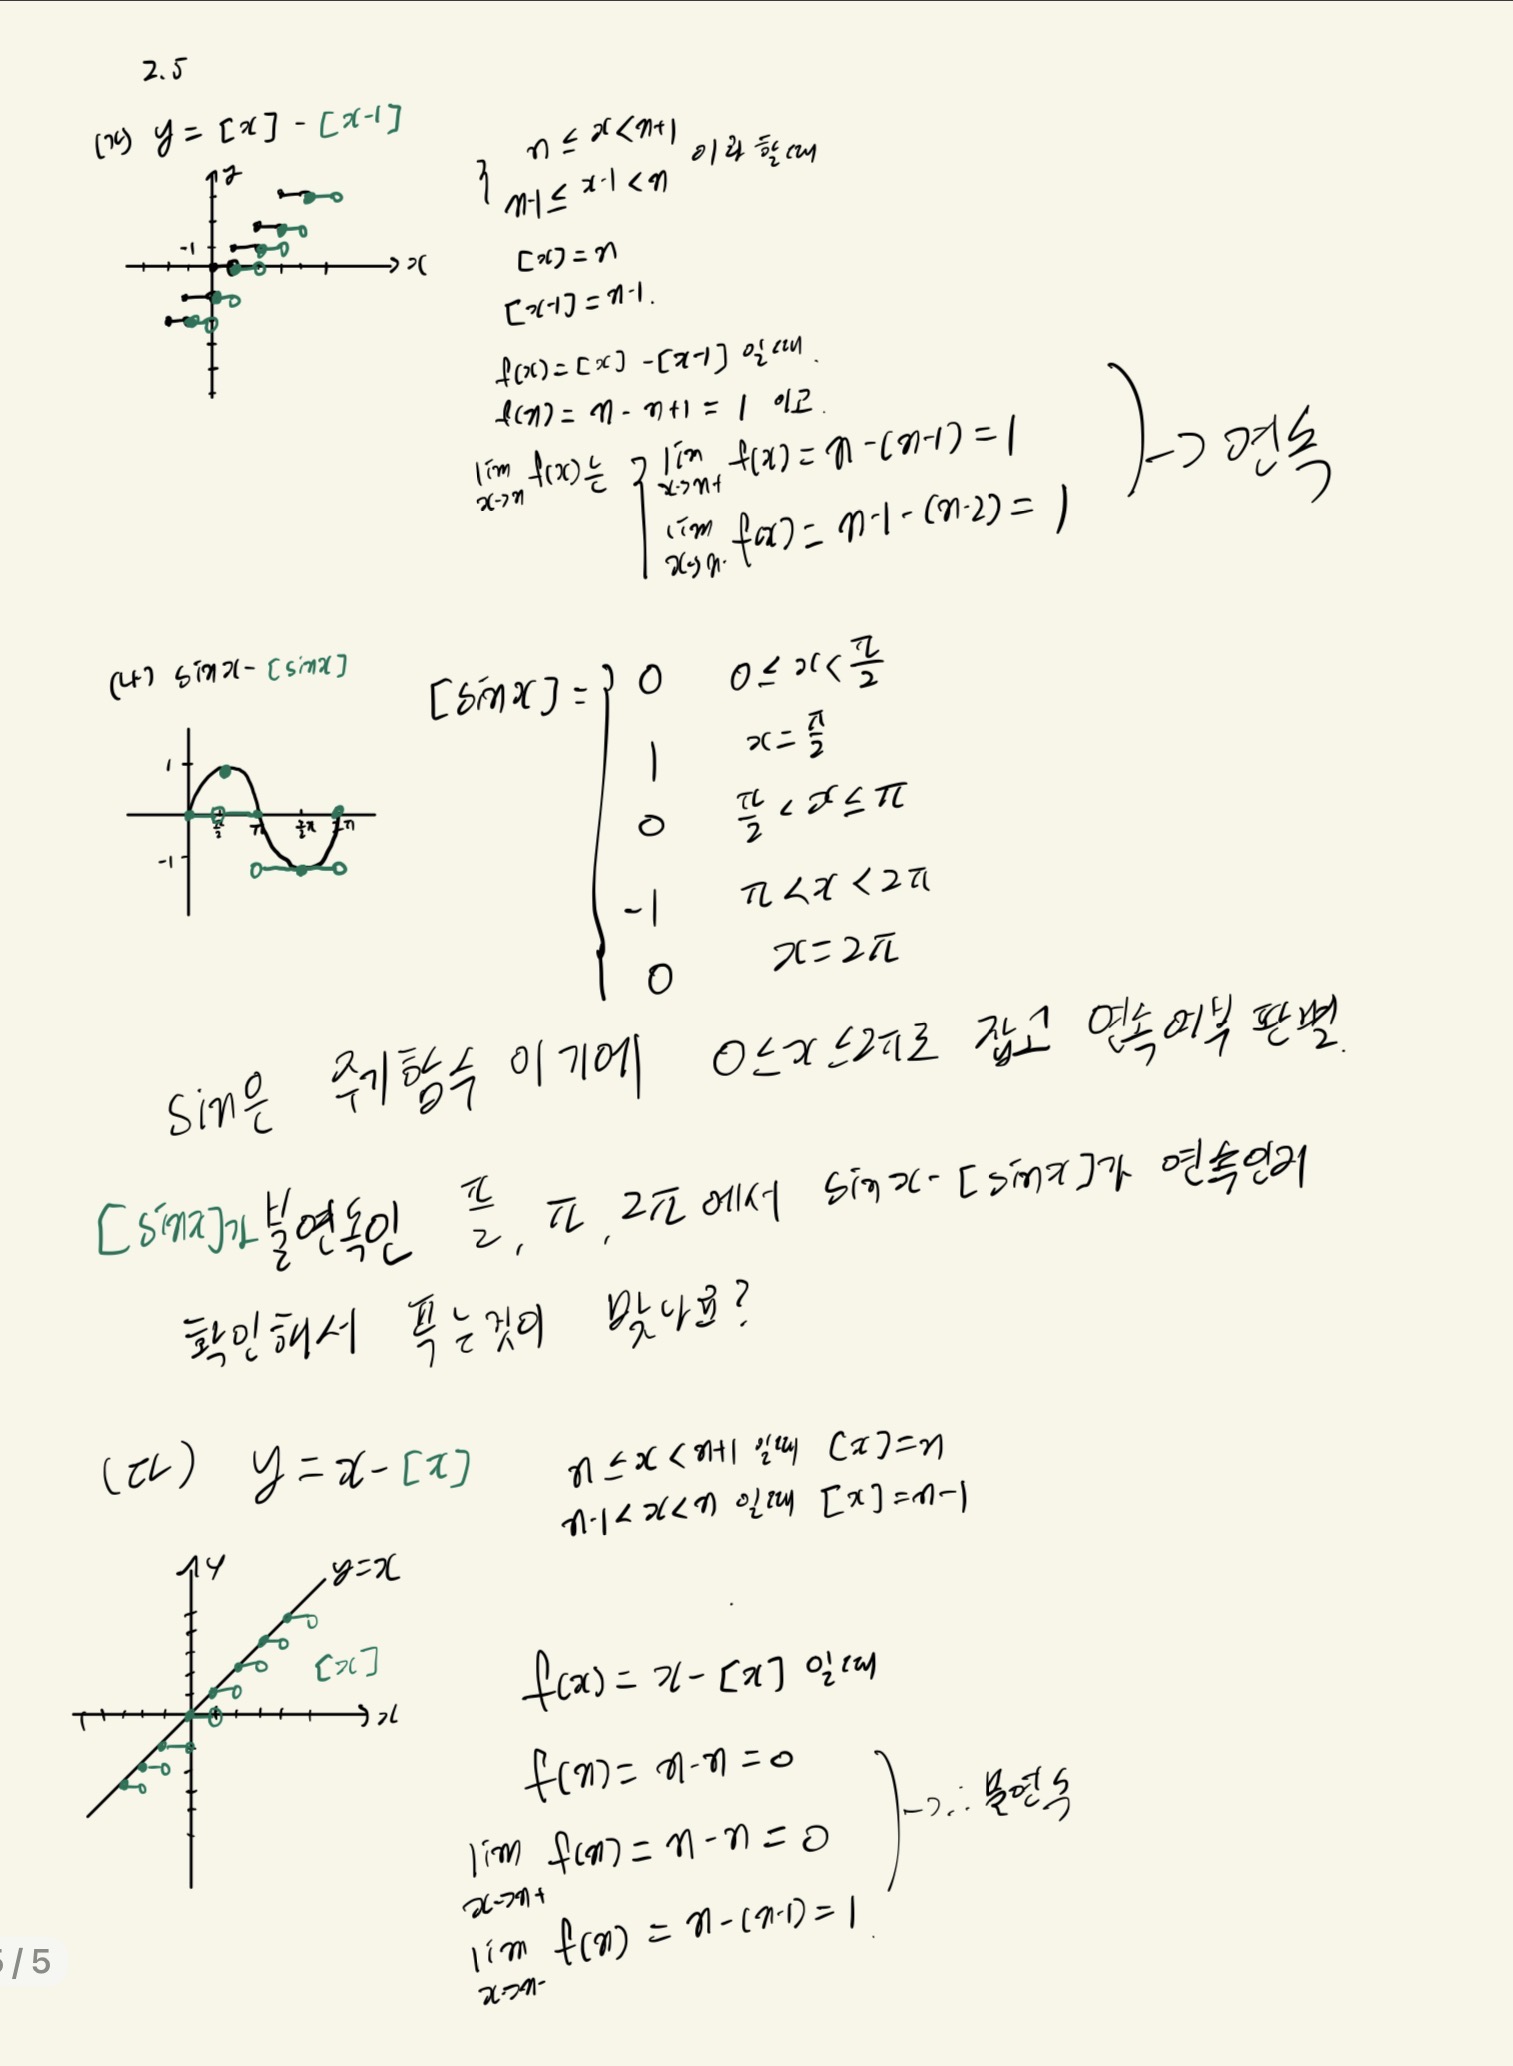 2.5
(가) y = [x] - [x-1]
y
-1
x
n ≤ x < n+1
n-1 ≤ x-1 < n 이라 할때
[x] = n
[x-1] = n-1.
f(x) = [x] - [x-1] 일때.
f(n) = n - n+1 = 1 이고.
lim x→n f(x)는 { lim x→n+ f(x) = n-(n-1) = 1
lim x→n- f(x) = n-1-(n-2) = 1
→ 연속
(나) sinx - [sinx]
1
-1
π/2 π 3/2π 2π
[sinx] = { 0 0 ≤ x < π/2
1 x = π/2
0 π/2 < x ≤ π
-1 π < x < 2π
0 x = 2π
sin은 주기함수 이기에 0≤x≤2π로 잡고 연속여부 판별.
[sinx]가 불연속인 π/2, π, 2π에서 sinx-[sinx]가 연속인지
확인해서 푹는것이 맞나요?
(다) y = x - [x]
n ≤ x < n+1 일때 [x] = n
n-1 < x < n 일때 [x] = n-1
y
y=x
[x]
x
f(x) = x - [x] 일때
f(n) = n-n = 0
lim x→n+ f(n) = n-n = 0
lim x→n- f(n) = n-(n-1) = 1.
→ ∴ 불연속
/ 5